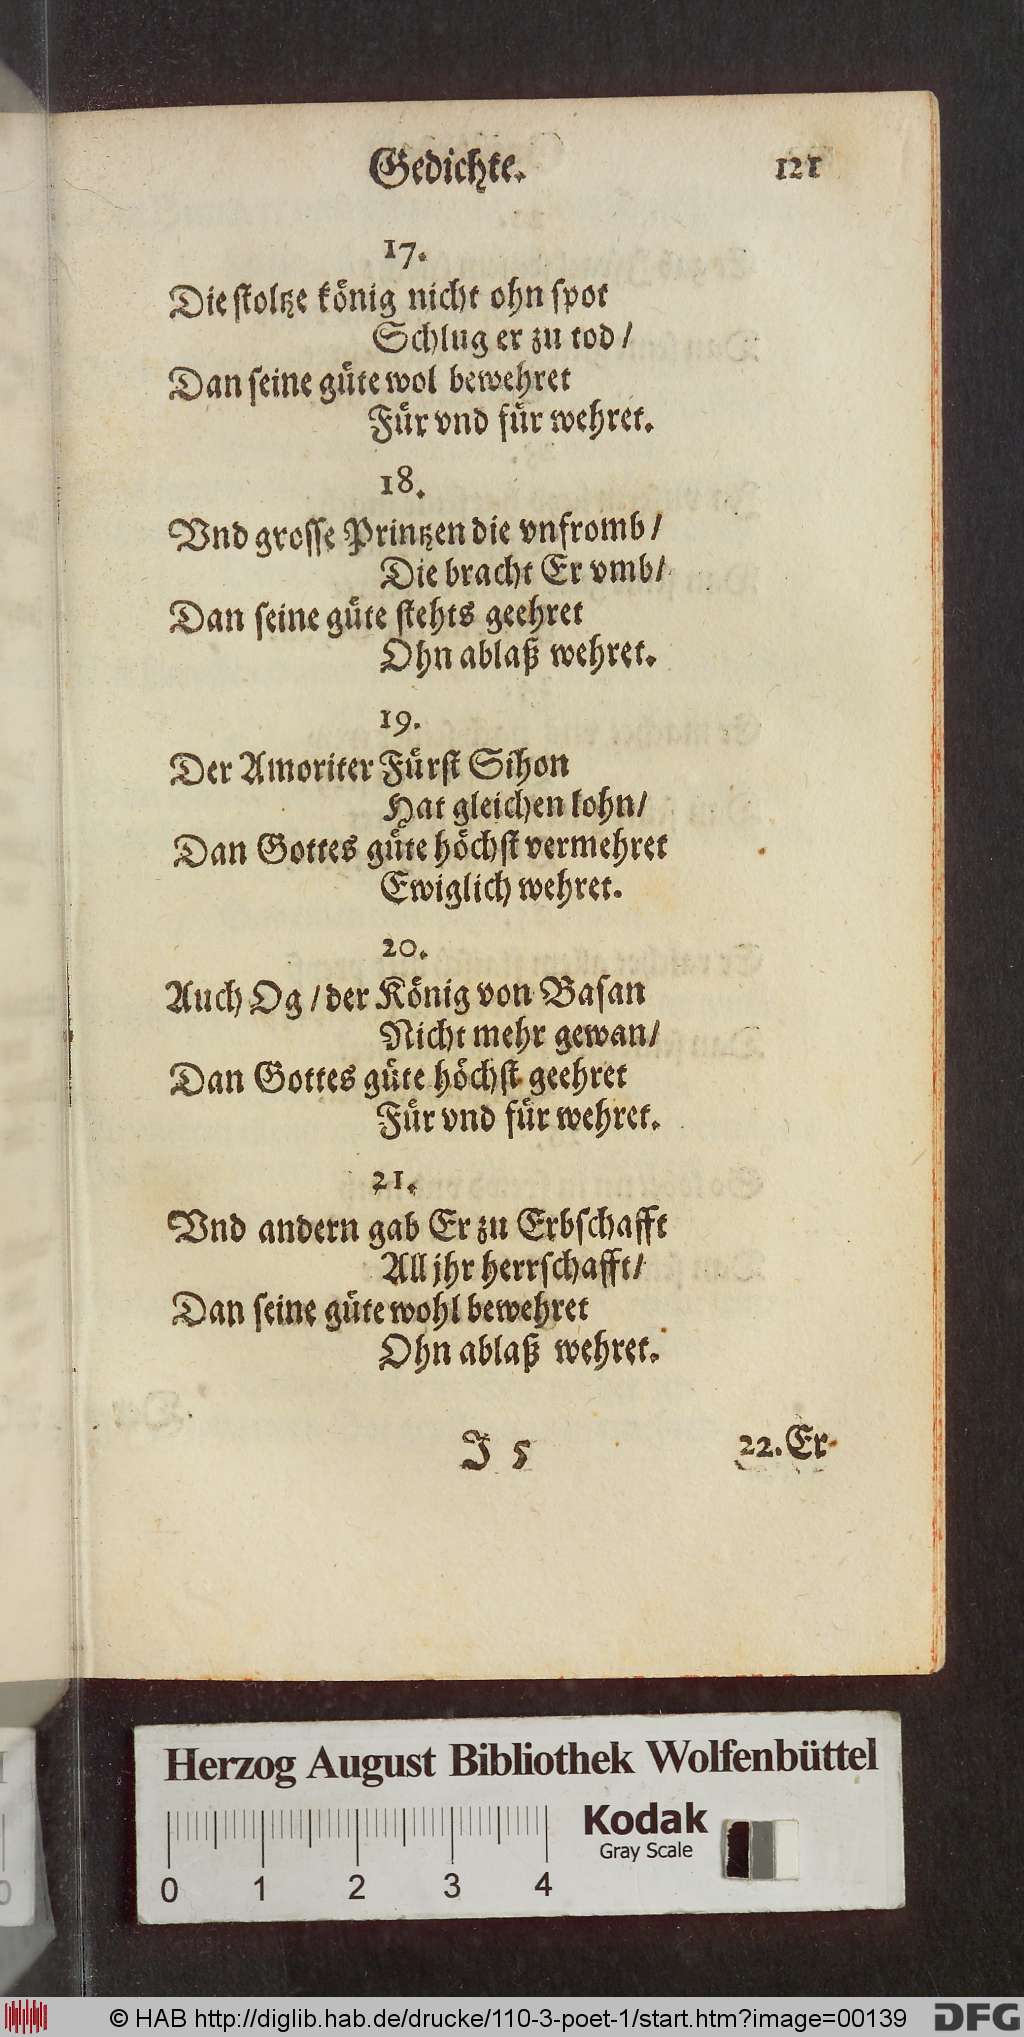 Gedichte. 121
17.
Die stoltze könig nicht ohn spot
Schlug er zu tod /
Dan seine güte wol bewehret
Für vnd für wehret.
18.
Vnd grosse Printzen die vnfromb /
Die bracht Er vmb /
Dan seine güte stehts geehret
Ohn ablaß wehret.
19.
Der Amoriter Fürst Sihon
Hat gleichen lohn /
Dan Gottes güte höchst vermehret
Ewiglich wehret.
20.
Auch Og / der König von Basan
Nicht mehr gewan /
Dan Gottes güte höchst geehret
Für vnd für wehret.
21.
Vnd andern gab Er zu Erbschafft
All jhr herrschafft /
Dan seine güte wohl bewehret
Ohn ablaß wehret.
J 5 22. Er
Herzog August Bibliothek Wolfenbüttel
Kodak
Gray Scale
0 1 2 3 4
© HAB http://diglib.hab.de/drucke/110-3-poet-1/start.htm?image=00139
DFG